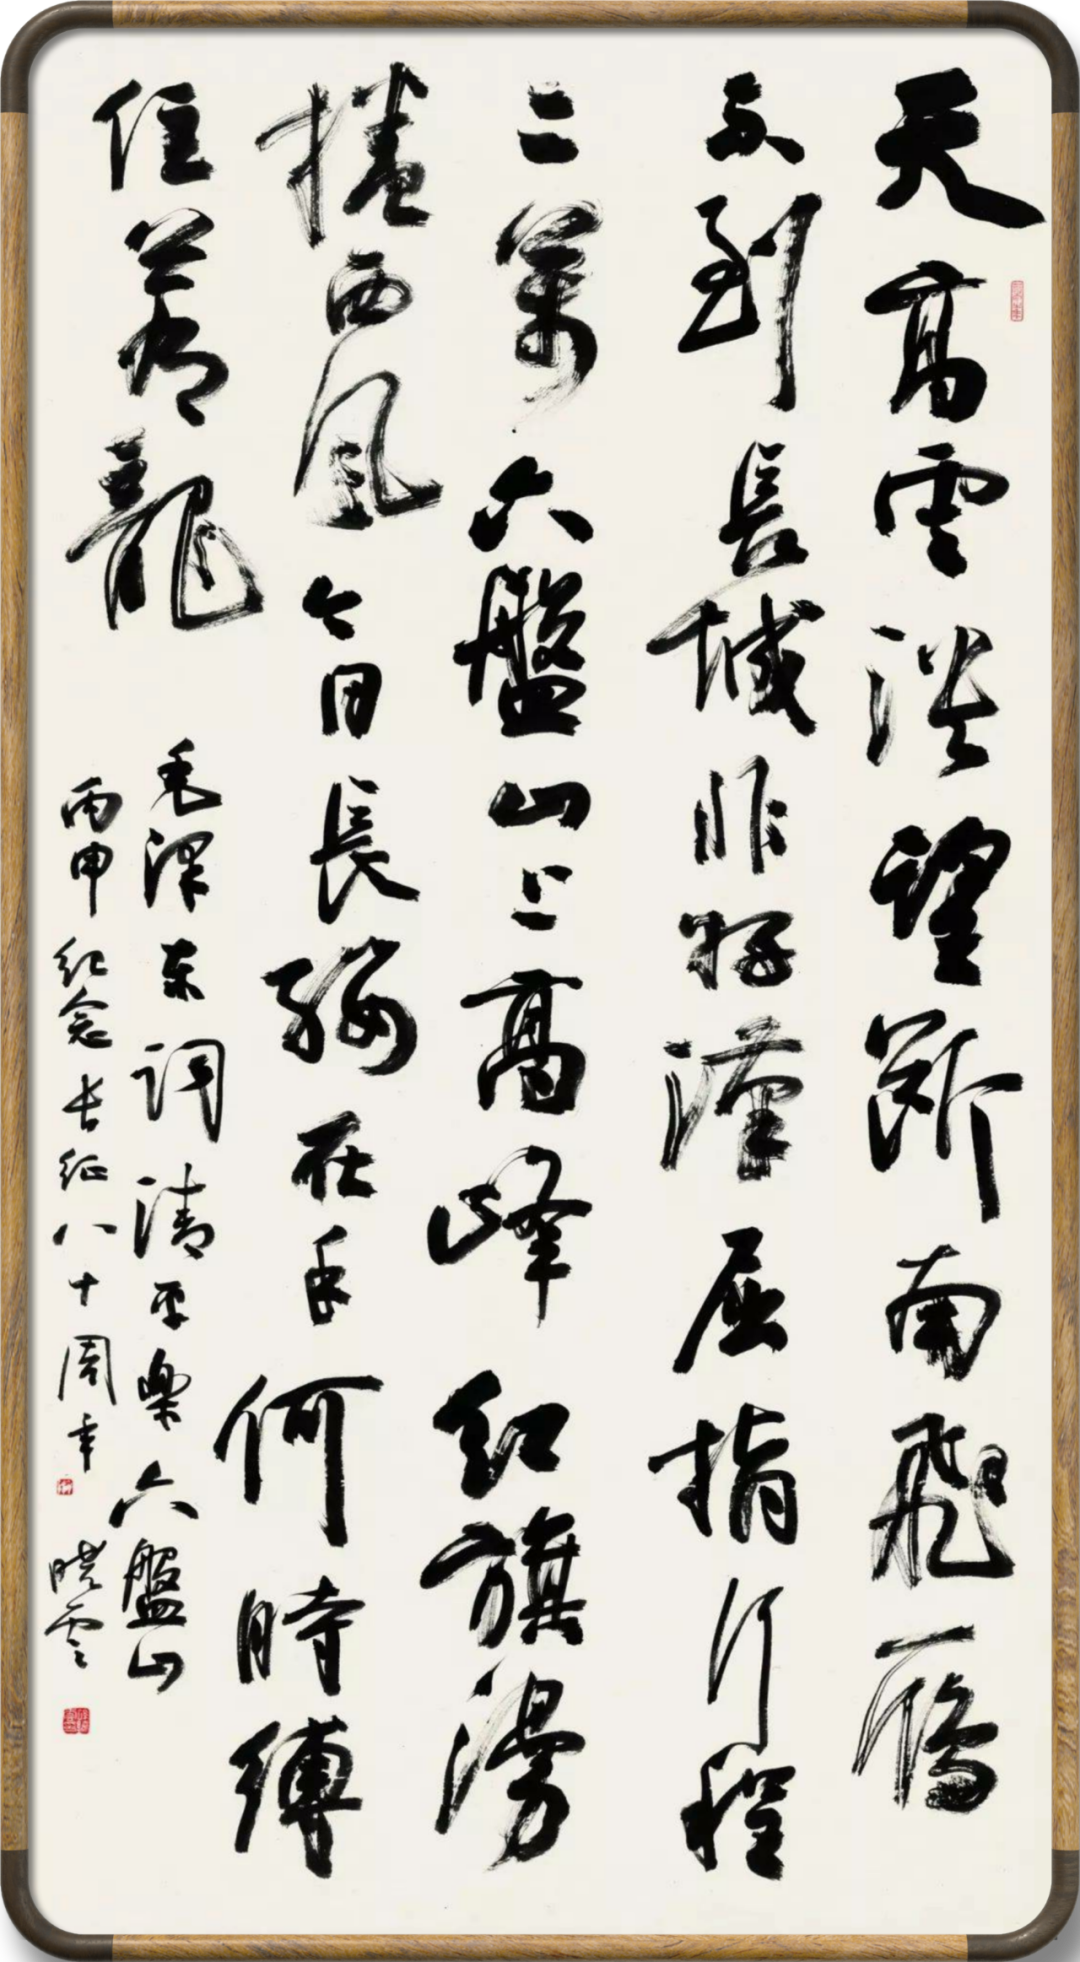 天高雲淡望斷南飛雁
不到長城非好漢屈指行程
二萬六盤山上高峰紅旗漫
捲西風今日長纓在手何時縛
住蒼龍
毛澤東詞清平樂六盤山
丙申紀念长征八十周年 晓雲